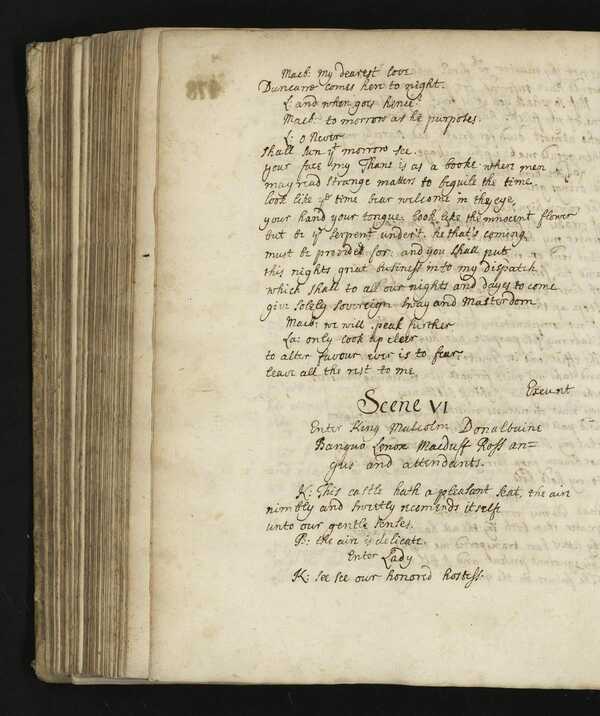 Macb: my dearest love
Duncane comes here to night.
L: and when goes hence?
Macb: to morrow as he purposes.
L: o Never
shall sun yt morrow see.
your face my Thane is as a booke where men
may read strange matters to beguile the time,
look like ye time bear welcome in the eye,
your hand your tongue: look like the innocent flower
but be ye serpent under't. he that's coming
must be provided for: and you shall put
this nights great business into my dispatch
which shall to all our nights and dayes to come
give solely sovereign sway and Masterdom
Macb: we will speak further
La: only look up cleer
to alter favour ever is to fear
leave all the rest to me
Exeunt
Scene VI
Enter King Malcolm Donalbaine
Banquo Lenox Macduff Ross an=
gus and attendants.
K: This castle hath a pleasant seat, the air
nimbly and sweetly recomends itself
unto our gentle senses.
B: the air is delicate.
Enter Lady
K: see see our honored hostess.